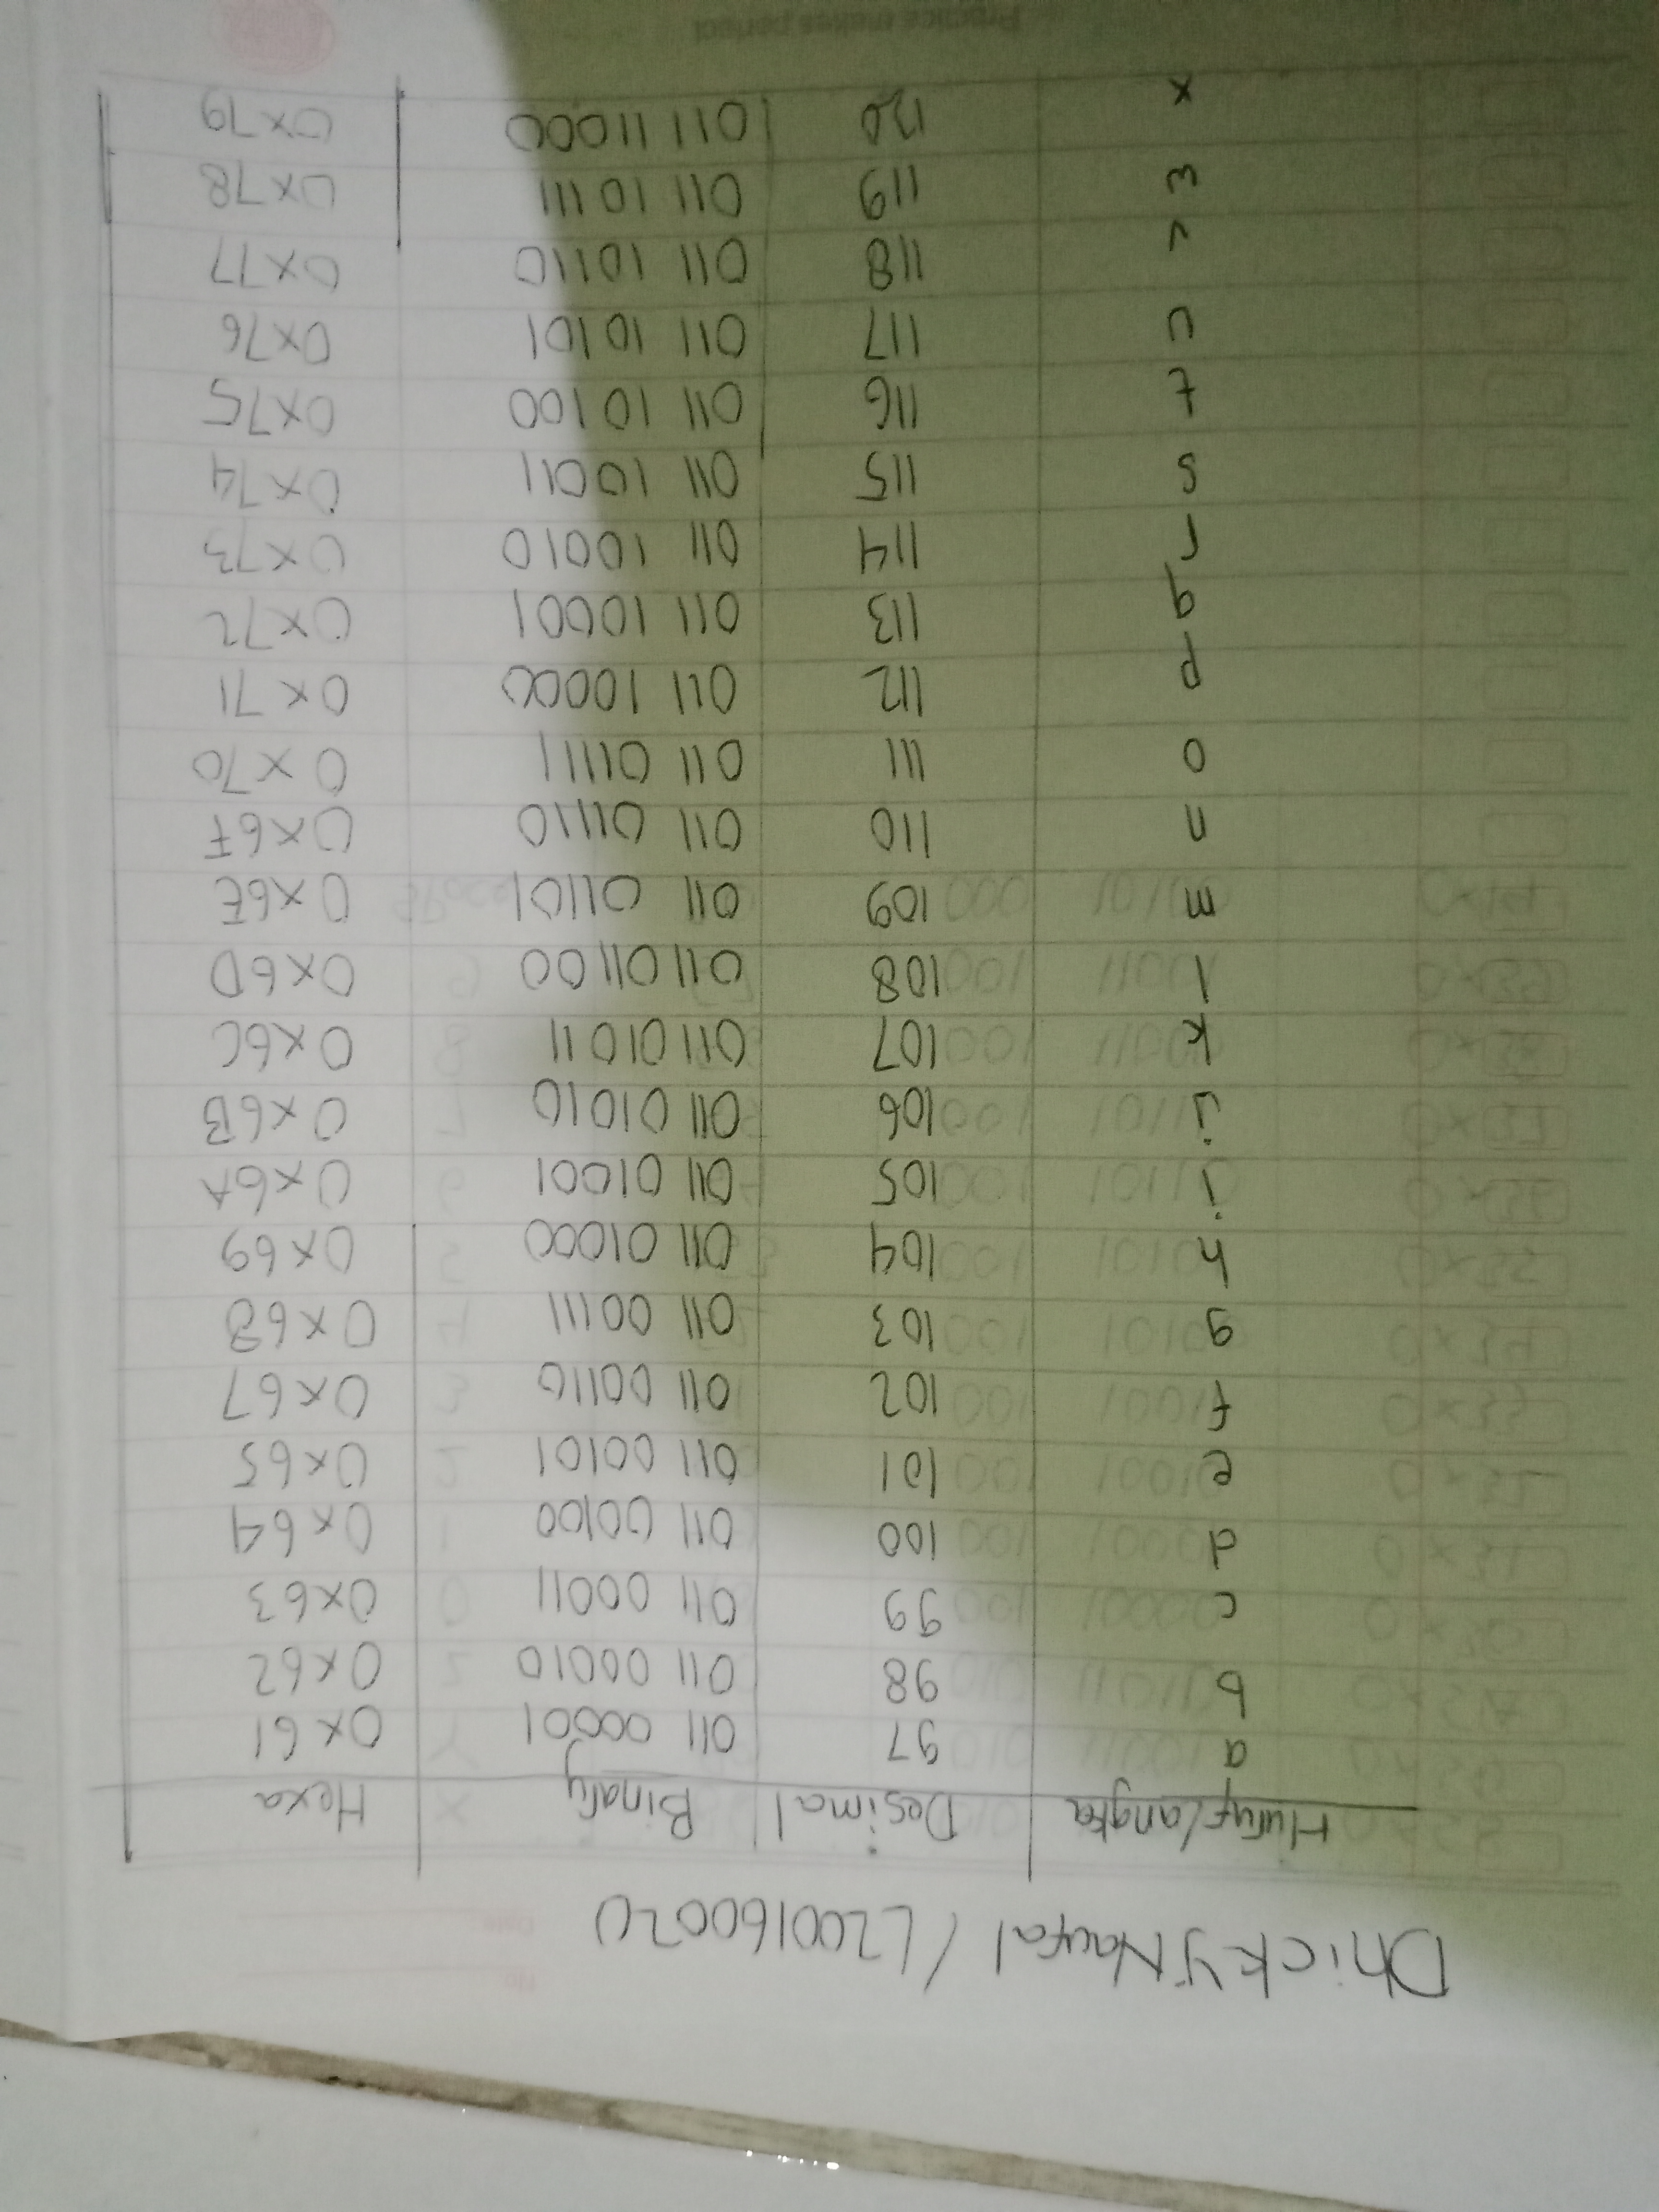 Dhicky Naufal / L200160020
Huruf/angka Desimal Binary Hexa
a 97 011 00001 0x61
b 98 011 00010 0x62
c 99 011 00011 0x63
d 100 011 00100 0x64
e 101 011 00101 0x65
f 102 011 00110 0x67
g 103 011 00111 0x68
h 104 011 01000 0x69
i 105 011 01001 0x6A
j 106 011 01010 0x6B
k 107 011 01011 0x6C
l 108 011 01100 0x6D
m 109 011 01101 0x6E
n 110 011 01110 0x6F
o 111 011 01111 0x70
p 112 011 10000 0x71
q 113 011 10001 0x72
r 114 011 10010 0x73
s 115 011 10011 0x74
t 116 011 10100 0x75
u 117 011 10101 0x76
v 118 011 10110 0x77
w 119 011 10111 0x78
x 120 011 11000 0x79
Practice makes perfect